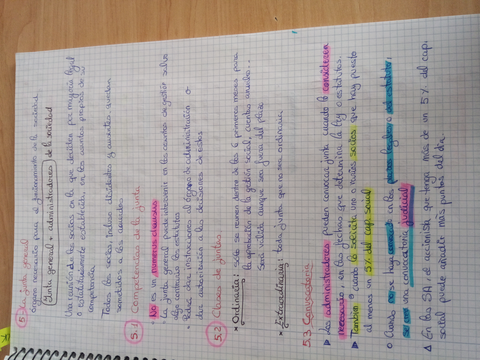 5. La junta general
órgano necesario para el funcionamiento de la sociedad
Junta general + administradores de la sociedad
Una reunión de los socios en la que deciden por mayoría legal
o estatutariamente establecida, en los asuntos propios de su
competencia
Todos los socios, incluso disidentes y ausentes quedan
sometidos a los acuerdos.
5.1 Competencias de la junta
Nos es un numerus clausus
La junta general puede intervenir en los asuntos de gestión salvo
algo contrario los estatutos
Podrá dar instrucciones al órgano de administración o
dar autorización a las decisiones de éstos
5.2 Clases de juntas.
Ordinaria: se reúne dentro de los 6 primeros meses para
la aprobación de la gestión social, cuentas anuales...
Será válida aunque sea fuera del plazo
Extraordinaria: toda junta que no sea ordinaria
5.3 Convocatoria
Los administradores pueden convocar junta cuando lo consideren
necesario, en las fechas que determina la ley o estatutos.
También cuando lo solicita uno o varios socios que haya puesto
al menos un 5% del cap. social
Cuando no se haya convocado en los plazos legales o
será una convocatoria judicial
En las SA, el accionista que tenga más de un 5% del cap.
social puede añadir más puntos del día.